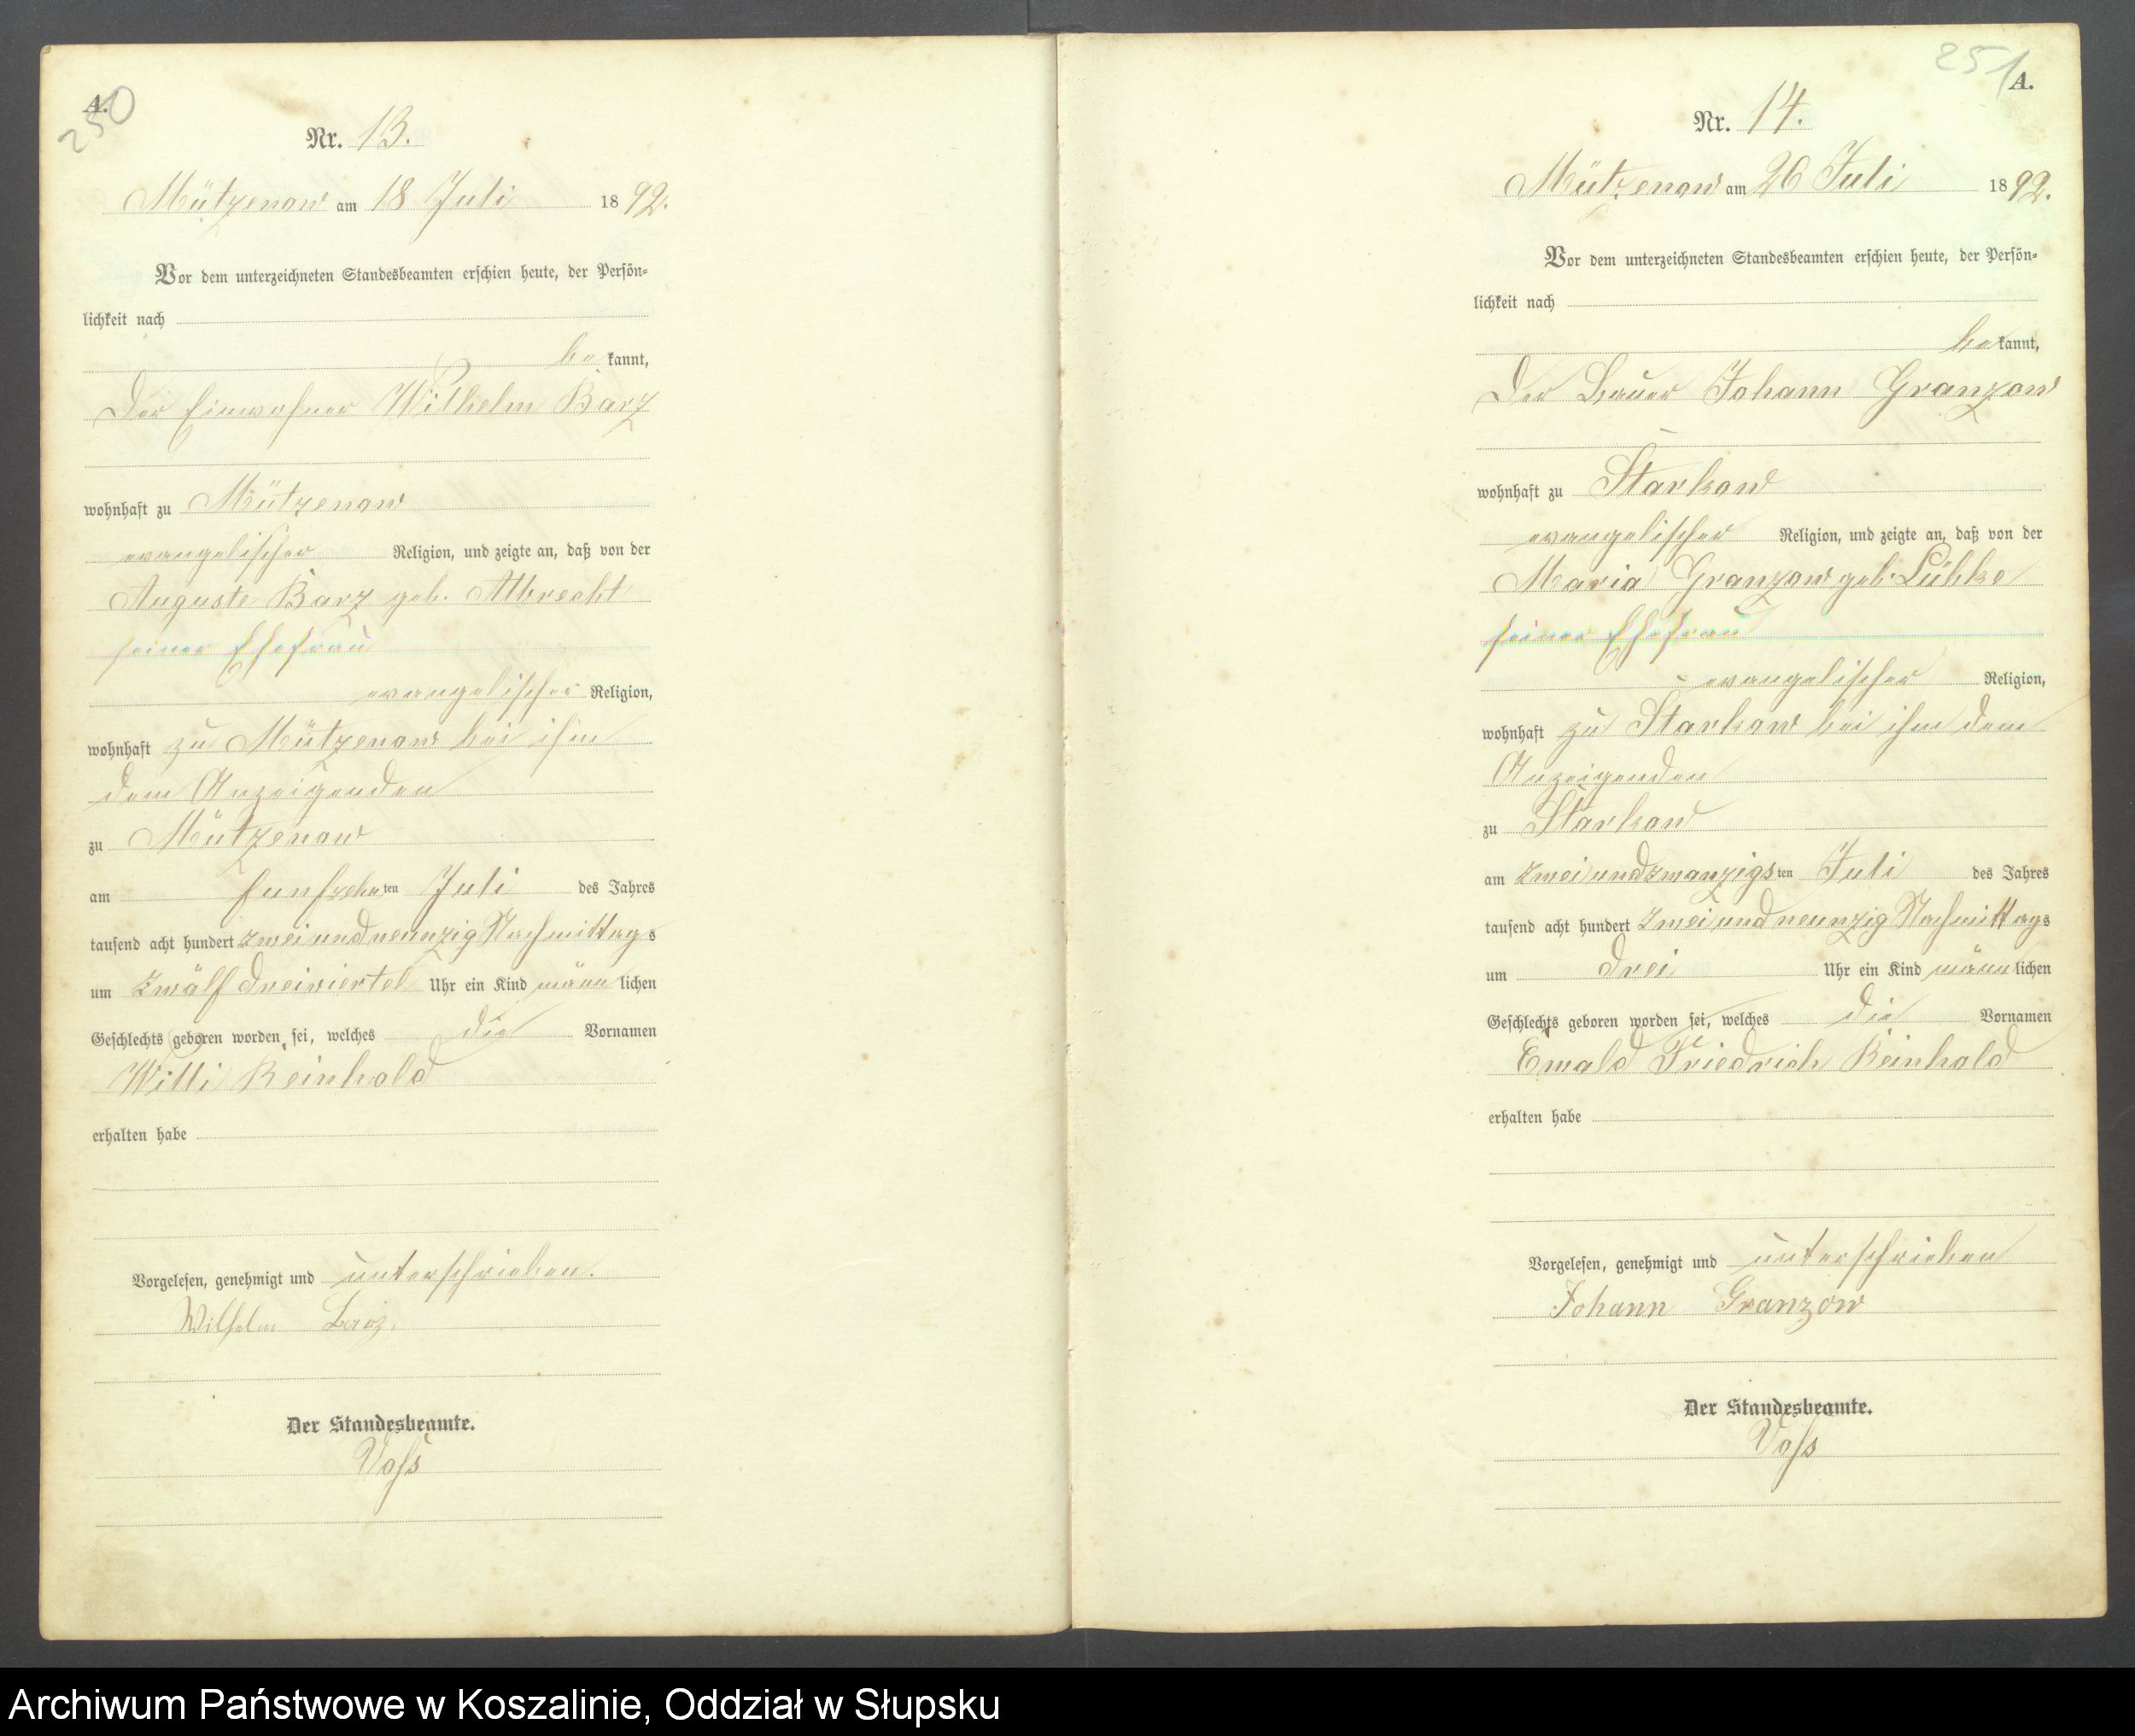 A.
250
Nr. 13.
Mützenow am 18 Juli 1892.
Vor dem unterzeichneten Standesbeamten erschien heute, der Persön-
lichkeit nach
bekannt,
Der Einwohner Wilhelm Barz
wohnhaft zu Mützenow
evangelischer Religion, und zeigte an, daß von der
Auguste Barz geb. Albrecht
seiner Ehefrau
evangelischer Religion,
wohnhaft zu Mützenow bei ihm
dem Anzeigenden
zu Mützenow
am funfzehnten Juli des Jahres
tausend acht hundert zweiundneunzig Nachmittags
um zwölf dreiviertel Uhr ein Kind männlichen
Geschlechts geboren worden sei, welches die Vornamen
Willi Reinhold
erhalten habe
Vorgelesen, genehmigt und unterschrieben.
Wilhelm Barz.
Der Standesbeamte.
Voss
251
A.
Nr. 14.
Mützenow am 26 Juli 1892.
Vor dem unterzeichneten Standesbeamten erschien heute, der Persön-
lichkeit nach
bekannt,
Der Bauer Johann Granzow
wohnhaft zu Starkow
evangelischer Religion, und zeigte an, daß von der
Maria Granzow geb. Lübke
seiner Ehefrau
evangelischer Religion,
wohnhaft zu Starkow bei ihm dem
Anzeigenden
zu Starkow
am zweiundzwanzigsten Juli des Jahres
tausend acht hundert zweiundneunzig Nachmittags
um drei Uhr ein Kind männlichen
Geschlechts geboren worden sei, welches die Vornamen
Ewald Friedrich Reinhold
erhalten habe
Vorgelesen, genehmigt und unterschrieben
Johann Granzow
Der Standesbeamte.
Voss
Archiwum Państwowe w Koszalinie, Oddział w Słupsku